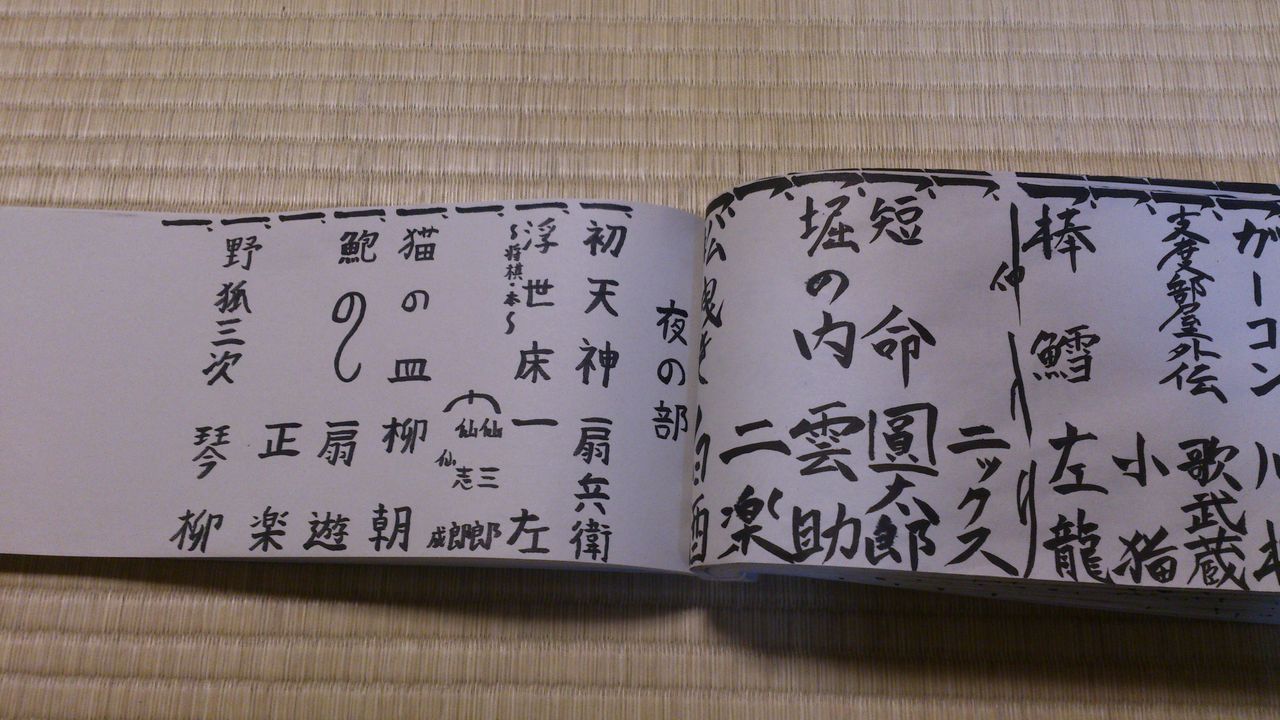 ガーコン 川
支度部屋外伝 歌武蔵
小猫
棒鱈 左龍
仲入り
ニックス
短命 圓太郎
堀の内 雲助
二楽
夜の部
初天神 扇兵衛
浮世床 一左
〜将棋・本〜
仙三郎
仙志郎
仙成
猫の皿 柳朝
鮑のし 扇遊
正楽
野狐三次 琴柳